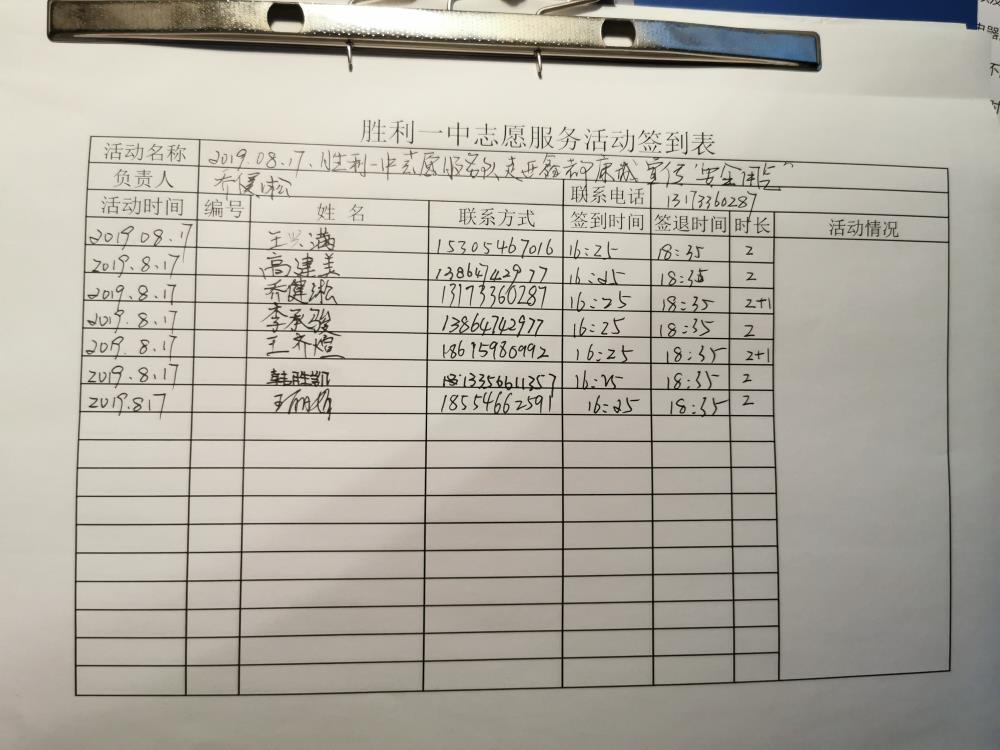 胜利一中志愿服务活动签到表
活动名称 2019.08.17.胜利一中志愿服务队走进鑫都康城宣传"安全用电"
负责人 乔健淞 联系电话 13173360287
活动时间 编号 姓名 联系方式 签到时间 签退时间 时长 活动情况
2019.08.17 王兴满 15305467016 16:25 18:35 2
2019.8.17 高建美 13864742977 16:25 18:35 2
2019.8.17 乔健淞 13173360287 16:25 18:35 2+1
2019.8.17 李承骏 13864742977 16:25 18:35 2
2019.8.17 王齐煊 18615980992 16:25 18:35 2+1
2019.8.17 韩胜凯 13356611357 16:25 18:35 2
2019.817 王丽娟 18554662591 16:25 18:35 2